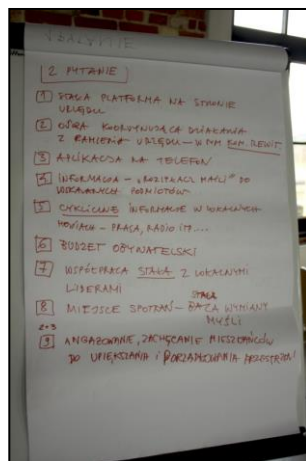 2 PYTANIE
1 STAŁA PLATFORMA NA STRONIE
URZĘDU
2 OSOBA KOORDYNUJĄCA DZIAŁANIA
Z RAMIENIA URZĘDU - W TYM KOM. REWIT
3 APLIKACJA NA TELEFON
4 INFORMACJA - "ROZSYŁACZ MAILI" DO
PODMIOTÓW
5 CYKLICZNE INFORMACJE W LOKALNYCH
- PRASA, RADIO ITP....
6 BUDŻET OBYWATELSKI
7 WSPÓŁPRACA STAŁA Z LOKALNYMI
LIDERAMI
STAŁA
8 MIEJSCE SPOTKAŃ - BAZA WYMIANY
MYŚLI
2+3
9 ANGAŻOWANIE, ZACHĘCANIE MIESZKAŃCÓW
DO UPIĘKSZANIA I PORZĄDKOWANIA PRZESTRZENI